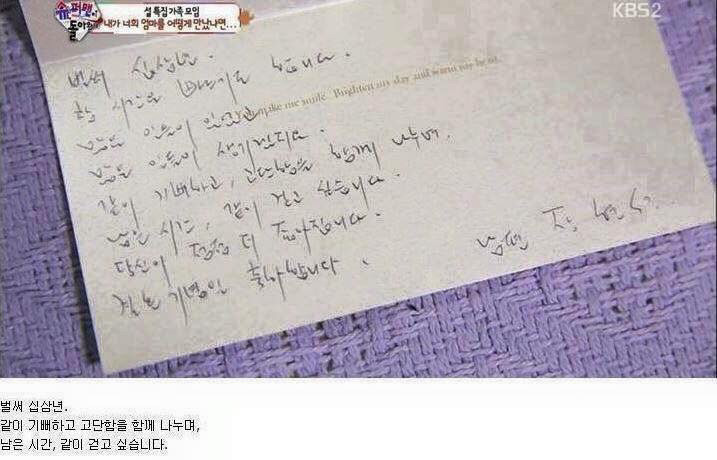 슈퍼맨이 돌아왔다
설 특집 가족 모임
내가 너희 엄마를 어떻게 만났냐면...
KBS2
make me smile. Brighten my day and warm my heart.
벌써 십삼년.
참 시간은 빠르기도 합니다.
많은 일들이
많은 일들이 생기겠지요.
같이 기뻐하고, 고단함을 함께 나누며,
남은 시간, 같이 걷고 싶습니다.
당신이 점점 더 좋아집니다.
결혼 기념일 축하합니다.
남편
벌써 십삼년.
같이 기뻐하고 고단함을 함께 나누며,
남은 시간, 같이 걷고 싶습니다.